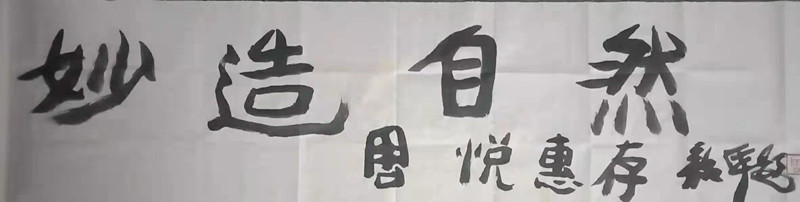 妙造自然
周悦惠存